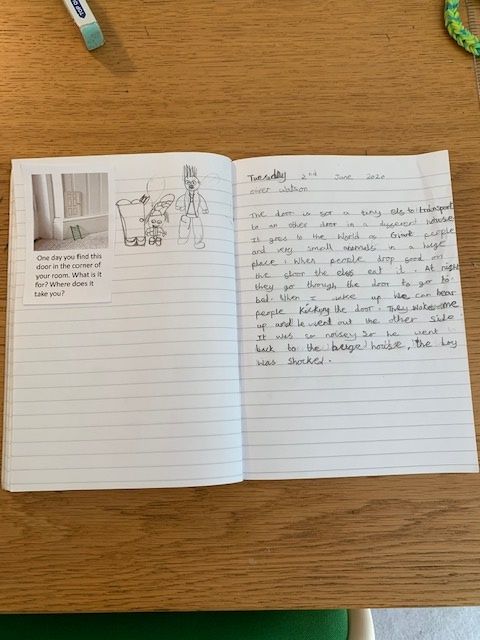 One day you find this
door in the corner of
your room. What is it
for? Where does it
take you?
Tuesday 2nd June 2020
The door is for a tiny elfs to transport
to an other door in a different house.
It goes to the World of Giant people
and very small animals in a huge
place. When people drop food on
the floor the elfs eat it. At night
they go through the door to go to
bed. When I wake up He can hear
people Kicking the door. They wakes me
up and he went out the other side
It was so noisey so he went
back to the house, the boy
was shocked.